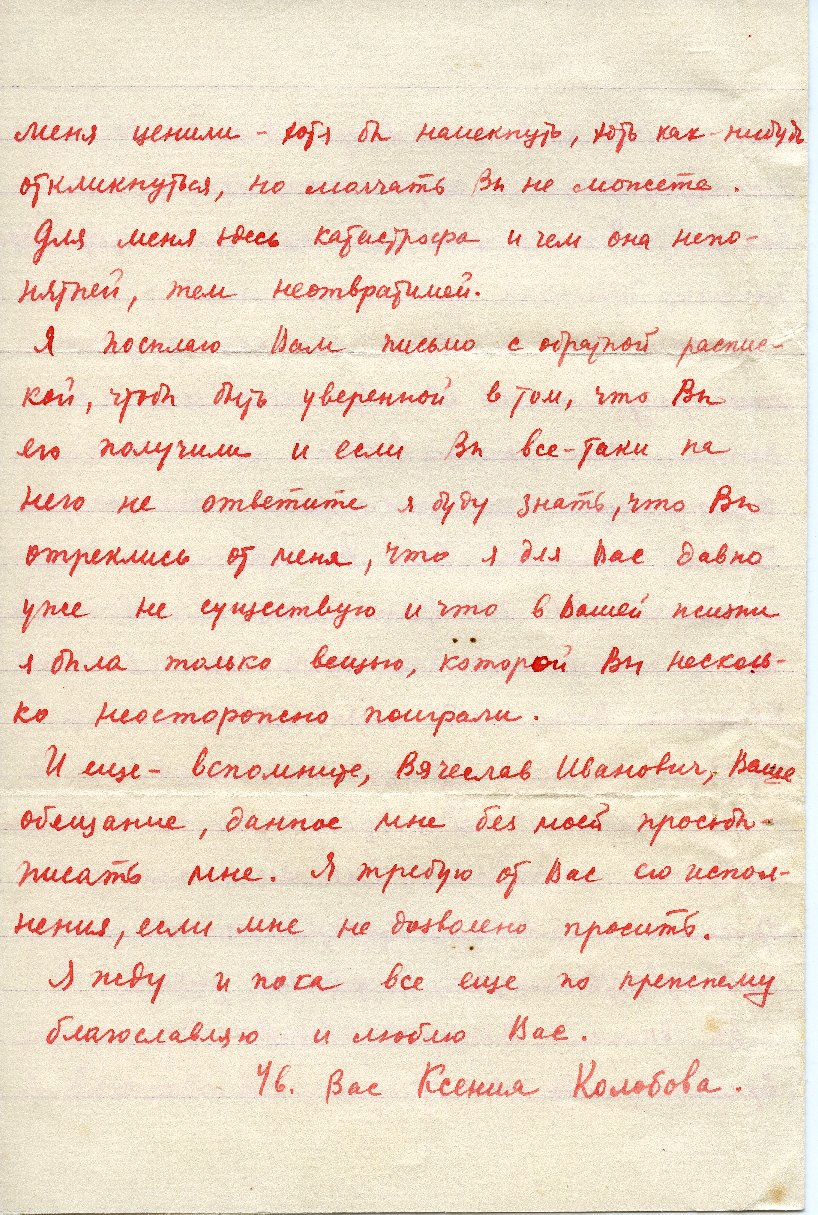 меня ценили - хотя бы намекнуть, хоть как-нибудь
откликнуться, но молчать Вы не можете.
Для меня здесь катастрофа и чем она непо-
нятней, тем неотвратимей.
Я посылаю Вам письмо с обратной распис-
кой, чтобы быть уверенной в том, что Вы
его получили и если Вы все-таки на
него не ответите я буду знать, что Вы
отреклись от меня, что я для Вас давно
уже не существую и что в Вашей жизни
я была только вещью, которой Вы несколь-
ко неосторожно поиграли.
И еще - вспомните, Вячеслав Иванович, Ваше
обещание, данное мне без моей просьбы -
писать мне. Я требую от Вас его испол-
нения, если мне не дозволено просить.
Я жду и пока все еще по прежнему
благославляю и люблю Вас.
Ув. Вас Ксения Колобова.